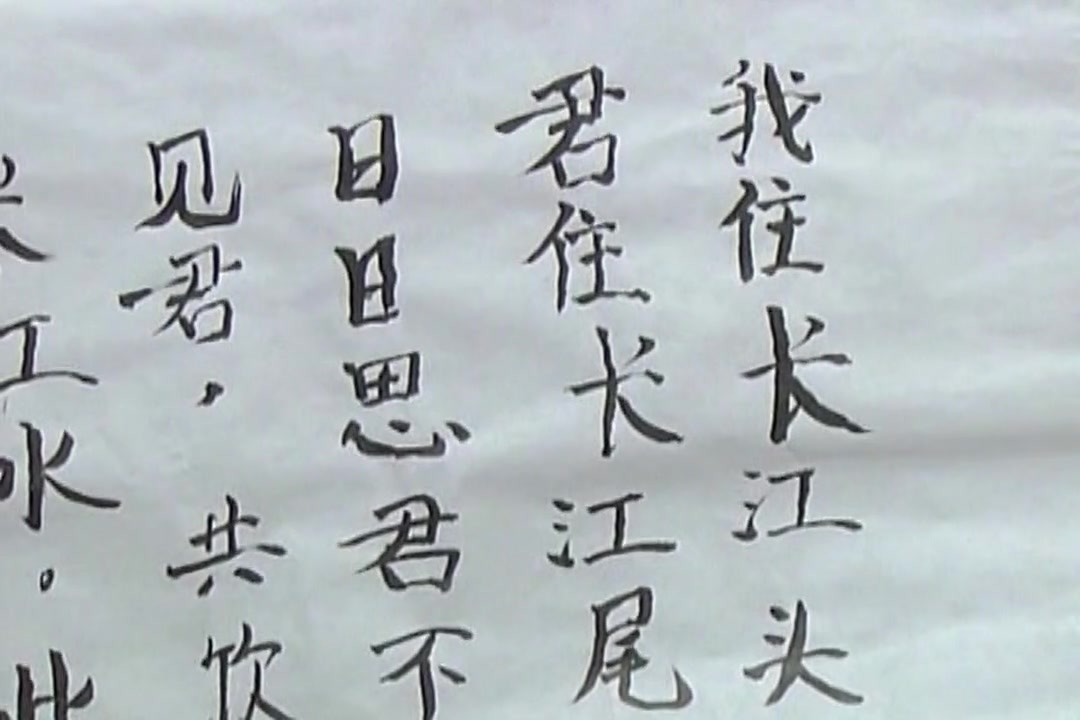 我住长江头
君住长江尾
日日思君不
见君，共饮
江水。此